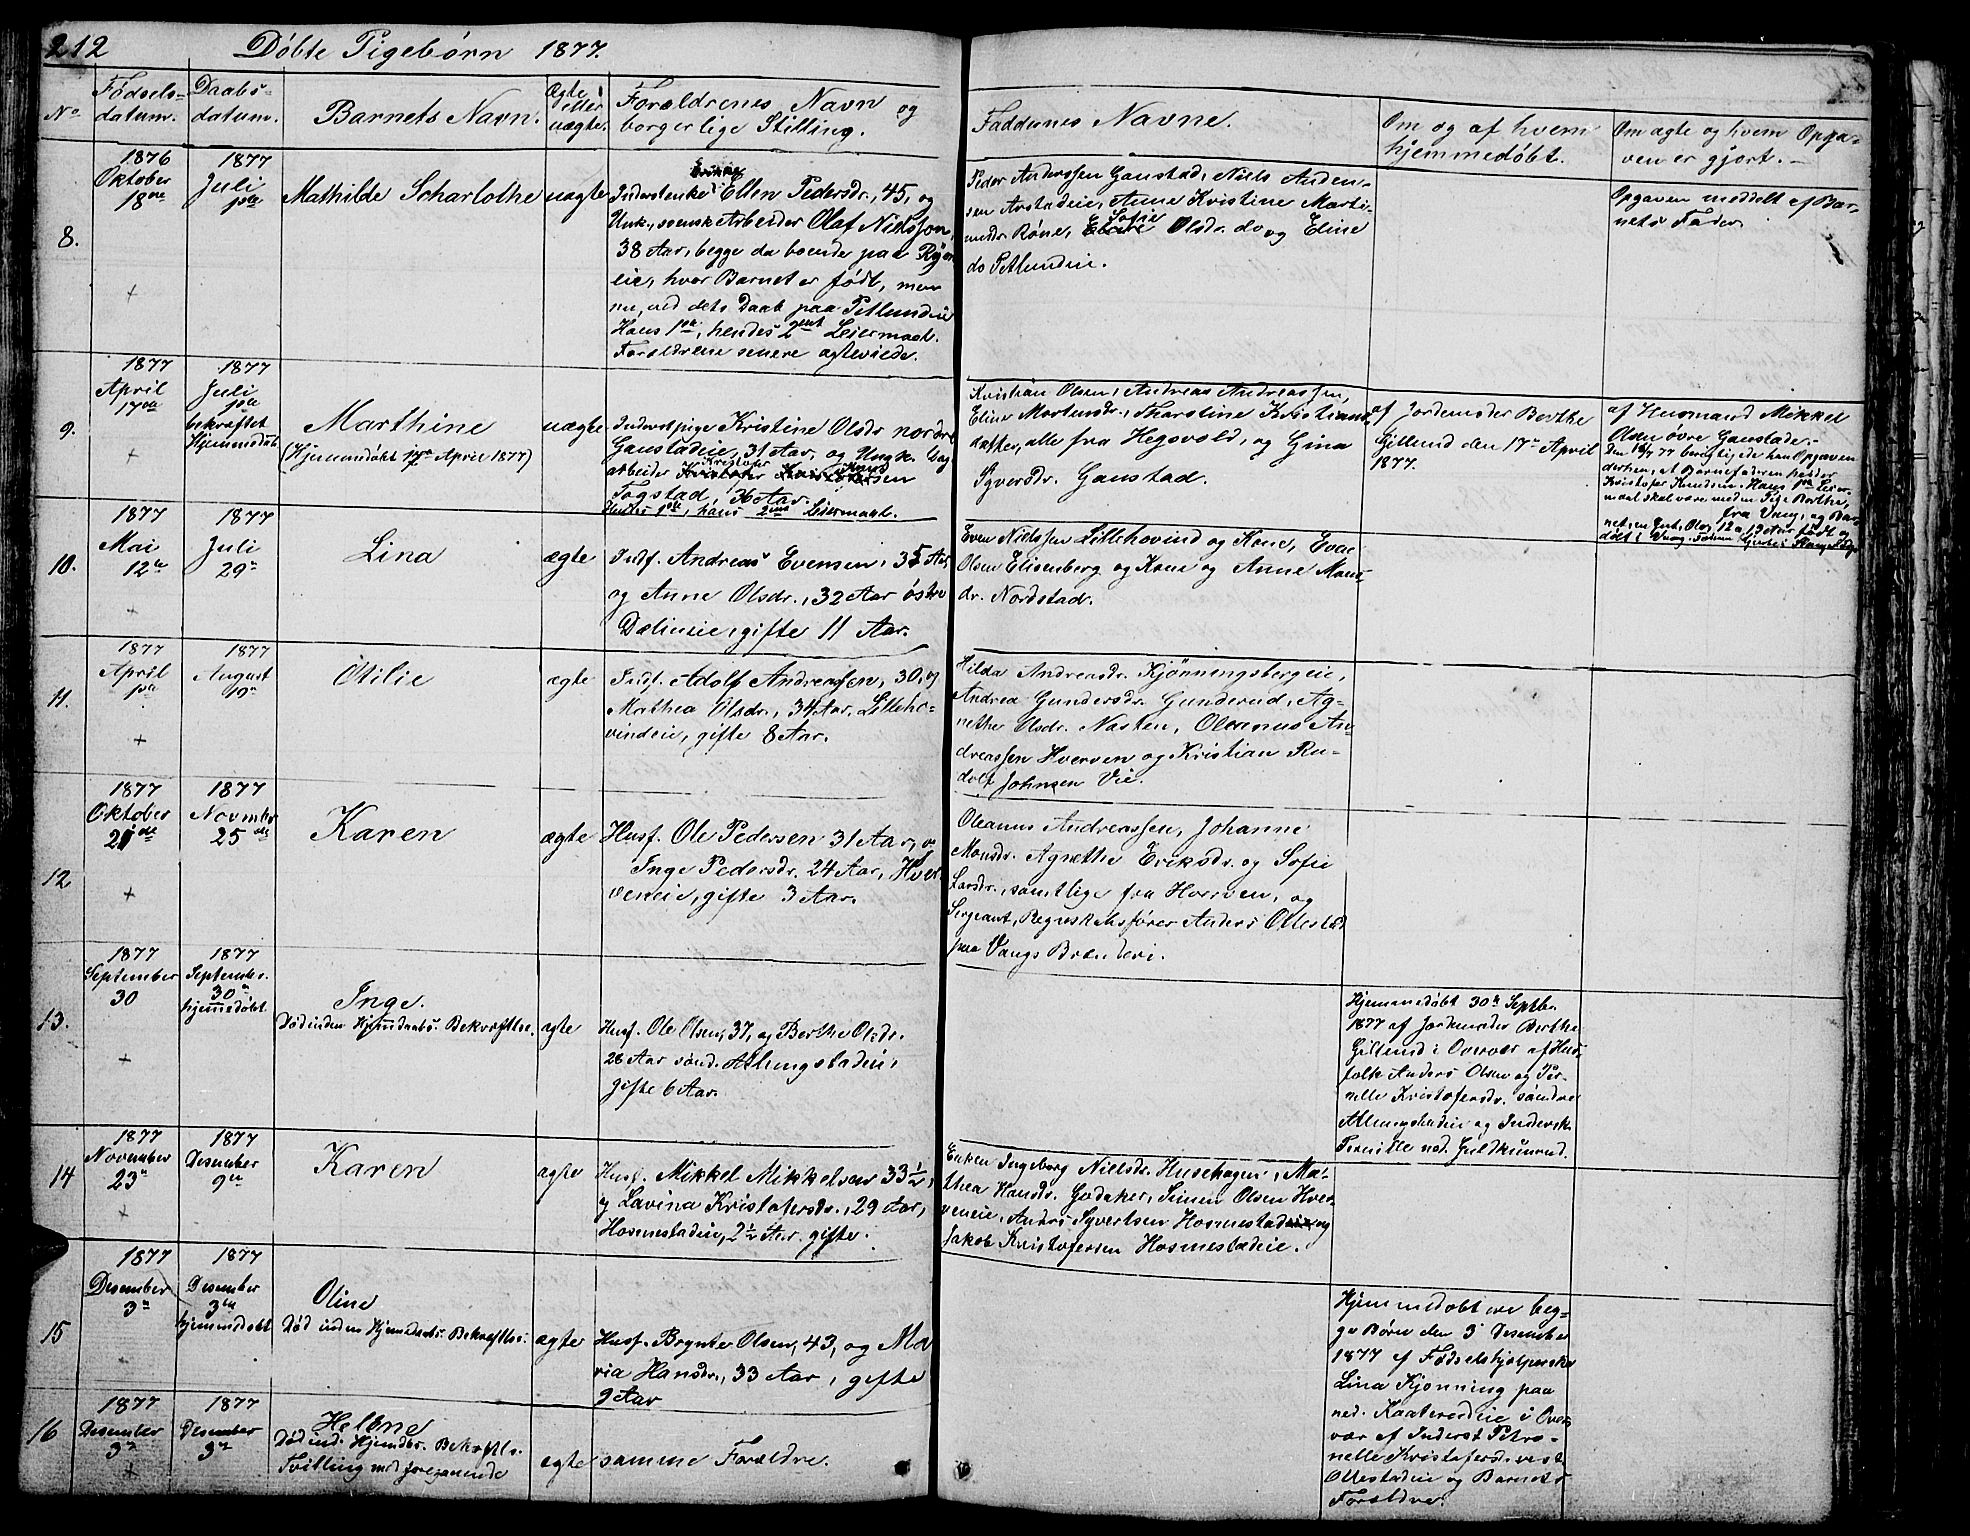 212
Döbte Pigebörn 1877.
No
Födsels-
datum.
Daabs-
datum.
Barnets Navn.
Ægte
eller
uægte.
Forældrenes Navn og
borgerlige Stilling.
Faddernes Navne.
Om og af hvem
hjemmedöbt.
Om ægte og hvem Opga-
ven er gjort.
8.
1876
Oktober
18de
1877
Juli
1ste
Mathilde Scharlothe
uægte
Inderstenke Ellen Pedersdr., 45, og
Unk., svensk Arbeider Olaf Nielsson,
38 Aar, begge da boende paa
eie, hvor Barnet er födt, men
nu, ved dets Daab paa Pellundeie
Hans 1ste, hendes 2det Leiermaal.
Forældrene senere ægteviede.
Peder Anderssen Ganstad, Niels Ander-
sen Arstadeie, Anne Kristine Marti-
nusdr. Röne, Sofie Olsdr. do og Eline
do Pellundeie.
Opgaven meddelt af Bar-
nets Fader.
9.
1877
April
17de
1877
Juli
1ste
bekræftet
Hjemmedaab
Marthine
(Hjemmedöbt 17de April 1877)
uægte
Inderstpige Kristine Olsdr. nordre
Ganstadeie, 31 Aar, og Ungk. Dag
arbeider Kristofer Knudsen
Fogstad, 36 Aar.
Hendes 1ste, hans 2det Leiermaal.
Kristian Olsen, Andreas Andreassen,
Eline Mortensdr., Thorstine Kristians-
datter, alle fra Hegsvold, og Gina
Syversdr. Ganstad.
af Jordemoder Berthe
Gillund den 17de April
1877.
af Husmand Mikkel
Olsen övre Ganstade.
Den 77 berigtigede han Opgaven
derhen, at Barnefaderen hedder
Kristofer Knudsen. Hans 1ste Leier-
maal skal være med en Pige Berthe,
fra Vang, og Bar-
net, en Gut, Olaf, 12 a 13 Aar, födt og
döbt i Vang.
10.
1877
Mai
12te
1877
Juli
29de
Lina
ægte
Indf. Andreas Evensen, 35 Aar,
og Anne Olsdr., 32 Aar östre
Dælineie, gifte 11 Aar.
Even Nielssen Lillehovind og Kone, Even
Olsen Elisenberg og Kone og Anne Mons-
dr. Nordstad.
11.
1877
April
1ste
1877
August
19de
Otilie
ægte
Indf. Adolf Andreassen, 30, og
Mathea Olsdr., 34 Aar, Lilleho-
vindeie, gifte 8 Aar.
Hilda Andreasdr. Kjönningsbergeie,
Andrea Gundersdr. Gunderud, Ag-
nethe Olsdr. Nasten, Oleanus An-
dreassen Hverven og Kristian Ru-
dolf Johnsen Vie.
12
1877
Oktober
21de
1877
November
25de
Karen
ægte
Husf. Ole Pedersen 31 Aar, og
Inge Pedersdr. 24 Aar, Hver-
veneie, gifte 3 Aar.
Oleanus Andreassen, Johanne
Monsdr. Agnethe Eriksdr. og Sofie
Larsdr., samtlige fra Hverven, og
Sergeant, Regnskabsförer Anders Ollestad
paa Vangs Brænderi.
13.
1877
September
30
1877
September
30de
hjemmedöbt
Inge.
Död inden Hjemmedaabs. Bekræftlse.
ægte
Husf. Ole Olsen, 37, og Berthe Olsdr.
28 Aar sönd. Alhungstadeie,
gifte 6 Aar.
Hjemmedöbt 30te Septbr.
1877 af Jordemoder Berthe
Gillund i Overvær af Hus-
folk Anders Olsen og Per-
nelle Kristofersdr. söndre
Alhungstadeie og Indersk.
Pernille ned. Guldkunrud.
14
1877
November
23de
1877
Desember
9de
Karen
ægte
Husf. Mikkel Mikkelsen 33½,
og Lavina Kristofersdr., 29 Aar,
Hosmestadeie, 2½ Aar gifte.
Enken Ingeborg Nielsdr. Husehagen, Ma-
thea Hansdr. Godaker, Simen Olsen Hver-
veneie, Anders Syvertsen Hosmestadeie og
Jakob Kristofersen Hosmestadeie.
15
1877
Desember
3de
1877
Desember
3de
hjemmedöbt
Oline
Död inden Hjemdaabs. Bekræftlse.
ægte
Husf. Brynte Olsen, 43, og Ma
ria Hansdr., 33 Aar, gifte
9 Aar
Hjemmedöbt ere beg-
ge Börn den 3 Desember
1877 af Födselshjelperske
Lina Kjönning paa
ned. Kaaterudeie i Over-
vær af Inderst Petro-
nelle Kristofersd. vest
Ollestadeie og Barnets
Forældre.
16
1877
Desember
3de
1877
Desember
3de
Helene
Död ind. Hjemdbs. Bekræftls.
Tvilling med foregaaende
ægte
samme Forældre.